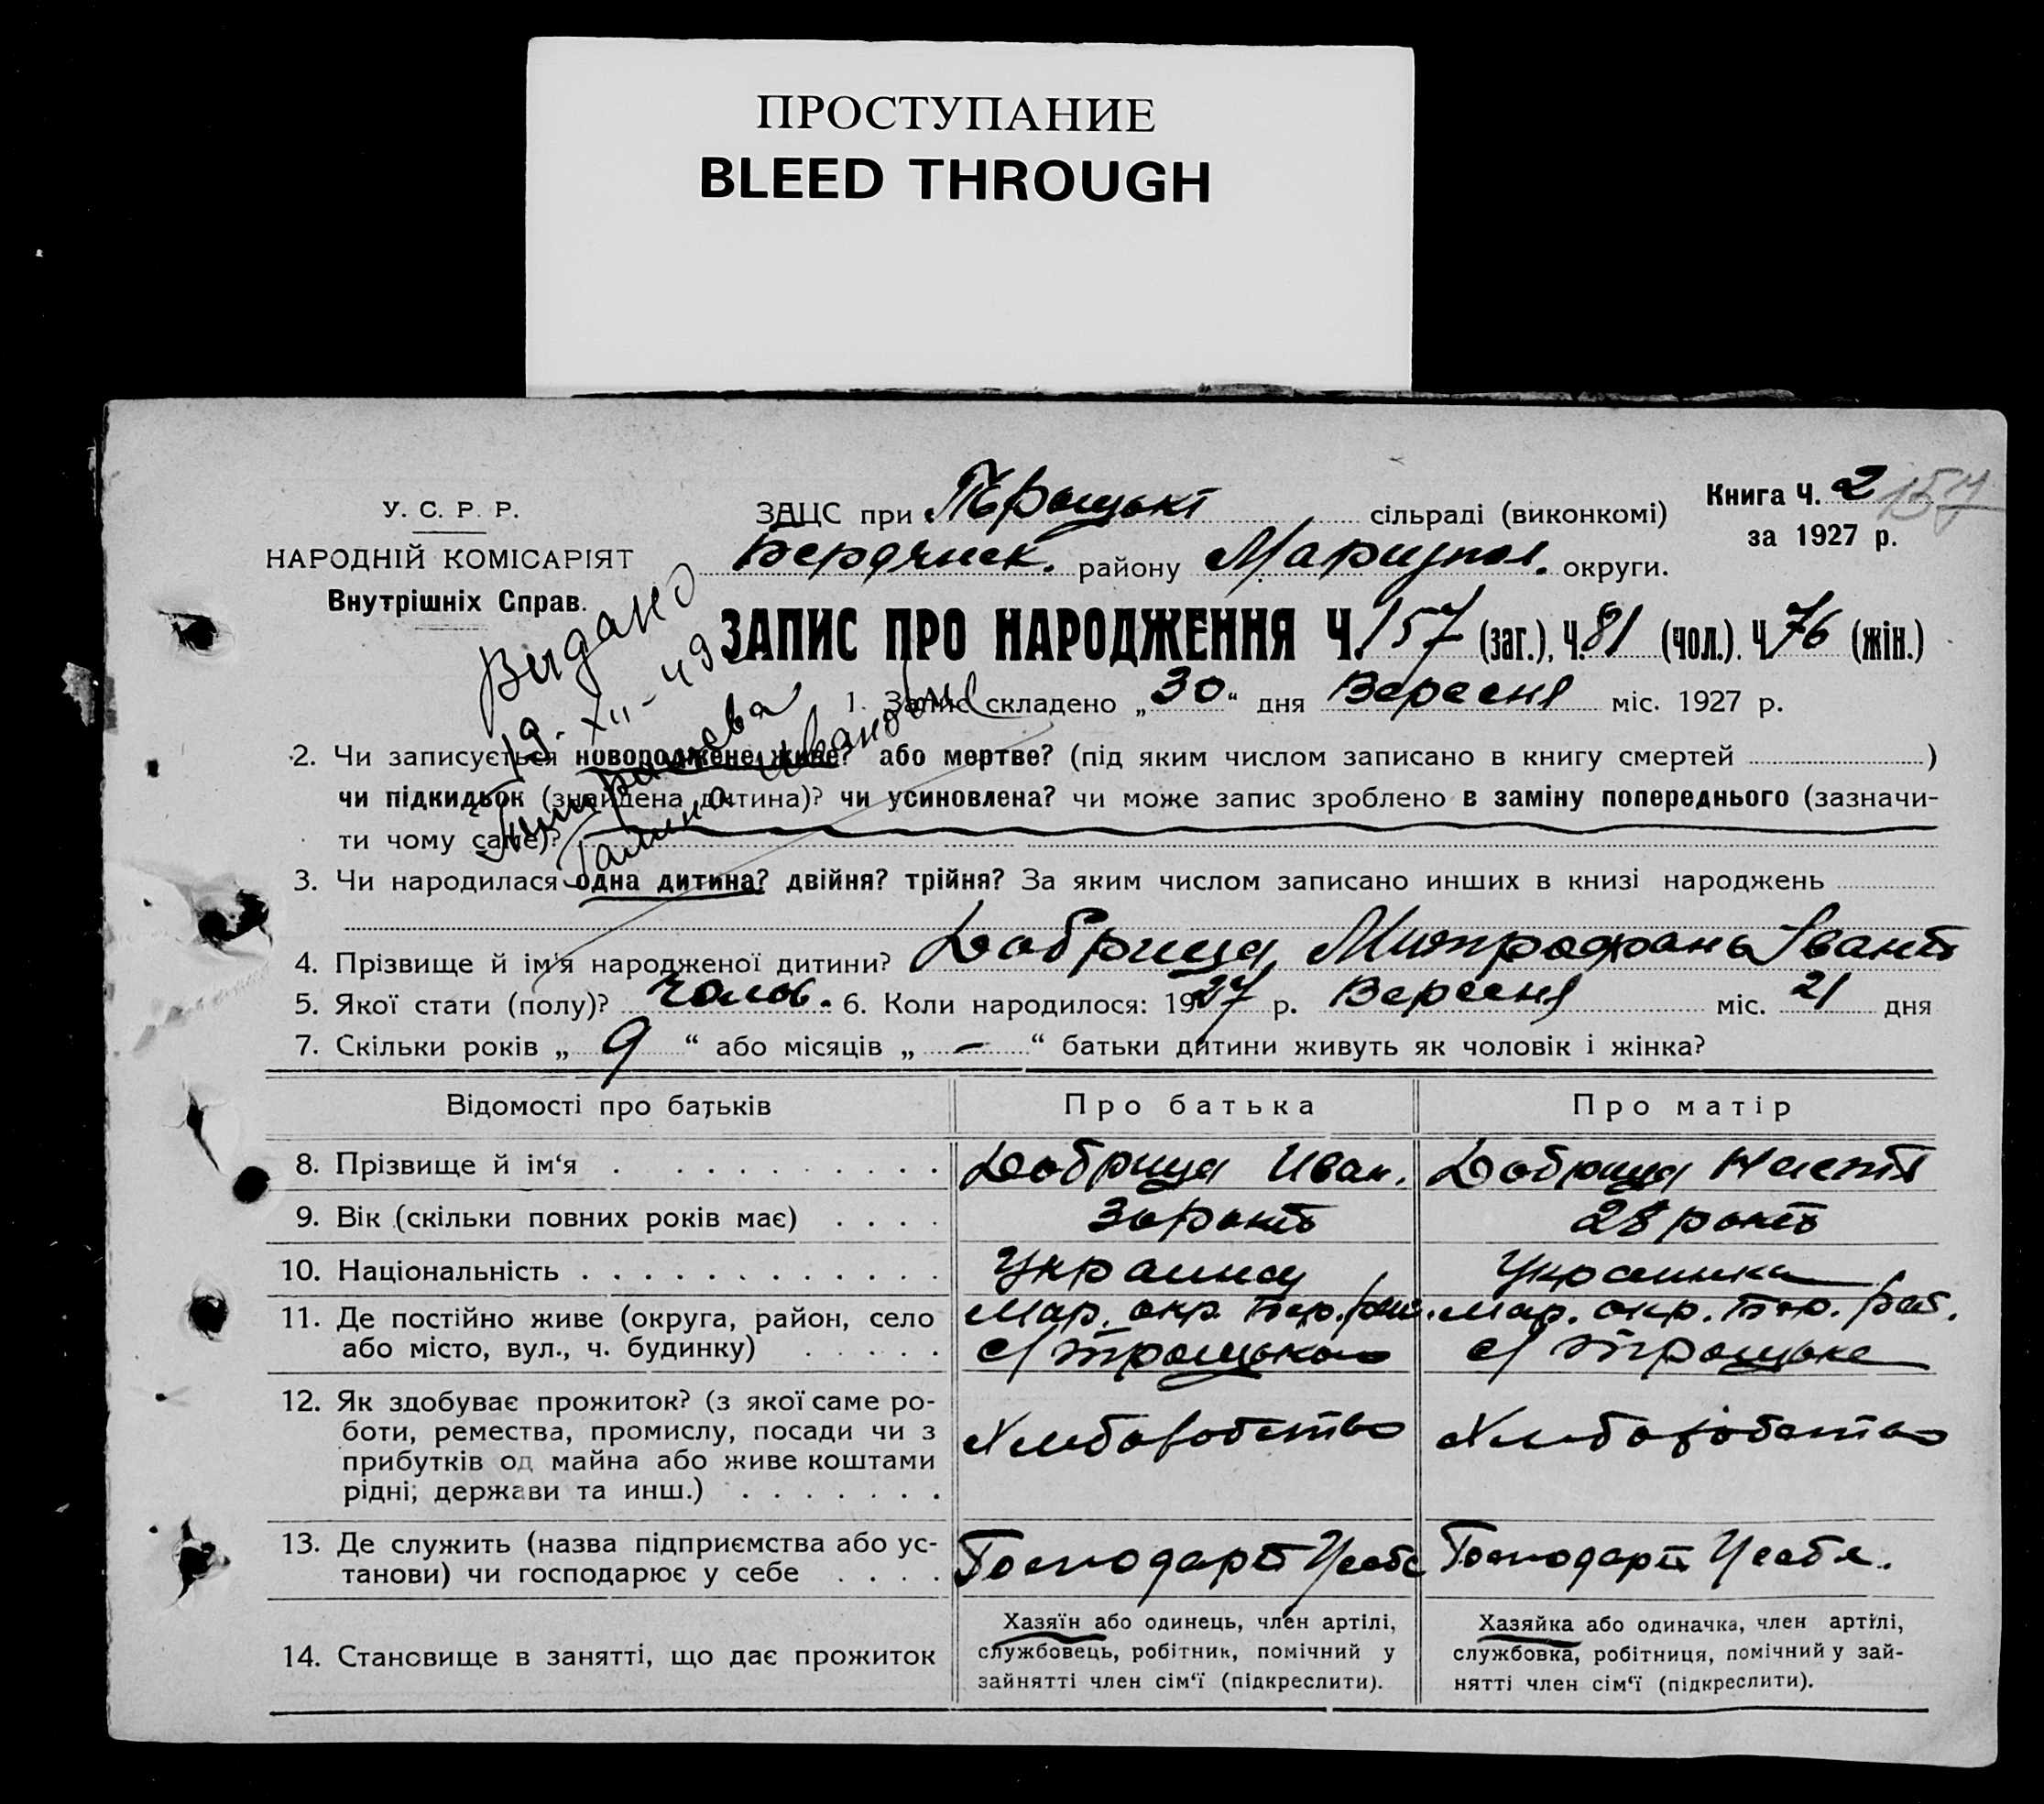 ПРОСТУПАНИЕ
BLEED THROUGH
У. С. Р. Р.
НАРОДНІЙ КОМІСАРІЯТ
Внутрішніх Справ.
ЗАЦС при сільраді (виконкомі)
Книга Ч. 2 157
за 1927 р.
Бердянск. району Мариупол. округи.
ЗАПИС ПРО НАРОДЖЕННЯ Ч. 157 (заг.), Ч. 81 (чол.). Ч. 76 (жін.)
Видано
19. XII - 49
Галина Ивановна
1. Запис складено „30“ дня Вересня міс. 1927 р.
2. Чи записується новороджене живе? або мертве? (під яким числом записано в книгу смертей )
чи підкидьок (знайдена дитина)? чи усиновлена? чи може запис зроблено в заміну попереднього (зазначи-
ти чому саме)?
3. Чи народилася одна дитина? двійня? трійня? За яким числом записано инших в книзі народжень
4. Прізвище й ім'я народженої дитини? Добрица Митрофань
5. Якої стати (полу)? Чолов. 6. Коли народилося: 1927 р. Вересня міс. 21 дня
7. Скільки років „ 9 “ або місяців „ — “ батьки дитини живуть як чоловік і жінка?
Відомості про батьків Про батька Про матір
8. Прізвище й ім‘я Добрица Иван. Добрица Настя
9. Вік (скільки повних років має) 30 рокть 28 рокть
10. Національність Украинец Украинка
11. Де постійно живе (округа, район, село Мар. окр. Бер. рай. Мар. окр. Бер. рай.
або місто, вул., ч. будинку) с/ Троцьком с/ Троцьке
12. Як здобуває прожиток? (з якої саме ро-
боти, ремества, промислу, посади чи з Хлиборобство Хлиборобство
прибутків од майна або живе коштами
рідні; держави та инш.)
13. Де служить (назва підприємства або ус- ГосподарЮ Усебе Господарю Усебя.
танови) чи господарює у себе
14. Становище в занятті, що дає прожиток
Хазяїн або одинець, член артілі,
службовець, робітник, помічний у
зайнятті член сім‘ї (підкреслити).
Хазяйка або одиначка, член артілі,
службовка, робітниця, помічний у зай-
нятті член сім‘ї (підкреслити).